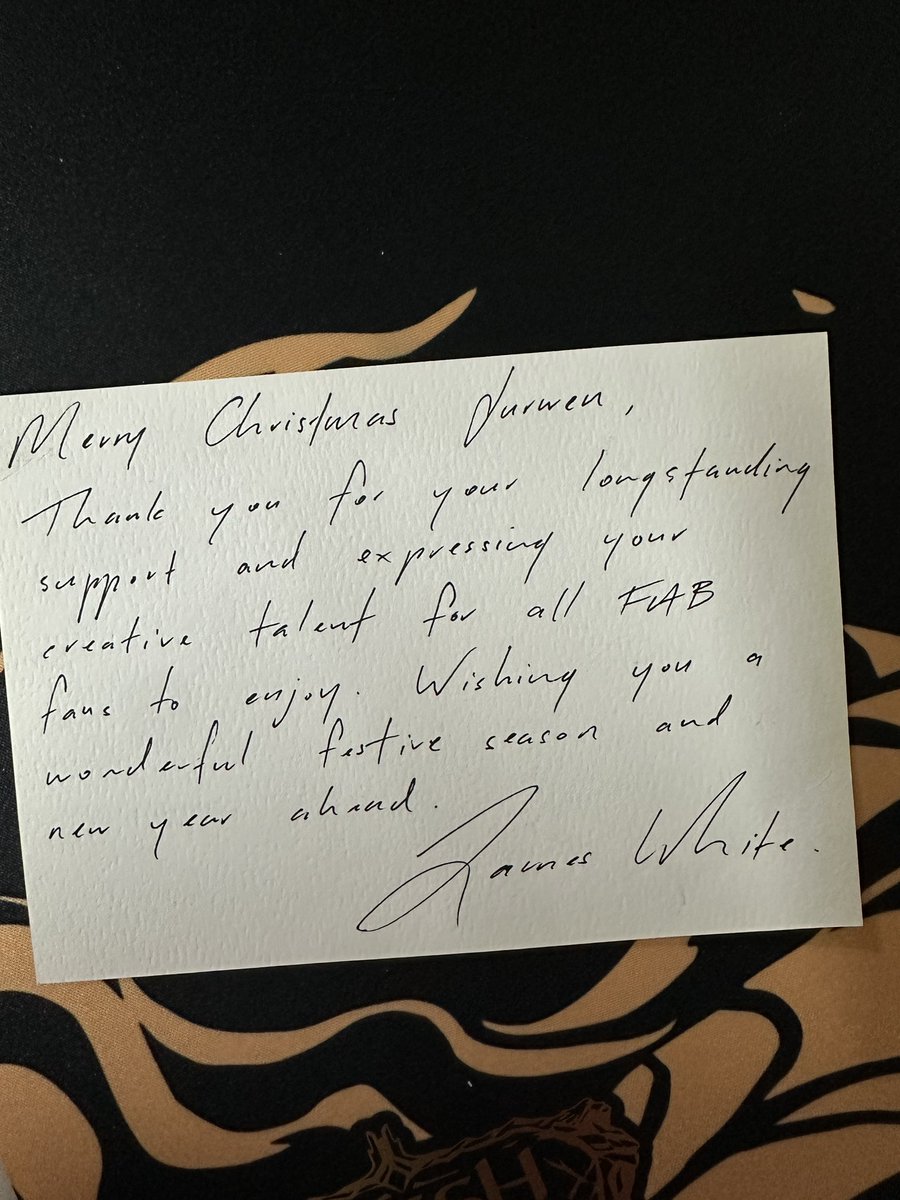 Merry Christmas Durwen,
Thank you for your longstanding
support and expressing your
creative talent for all FAB
fans to enjoy. Wishing you a
wonderful festive season and
new year ahead.
James White.